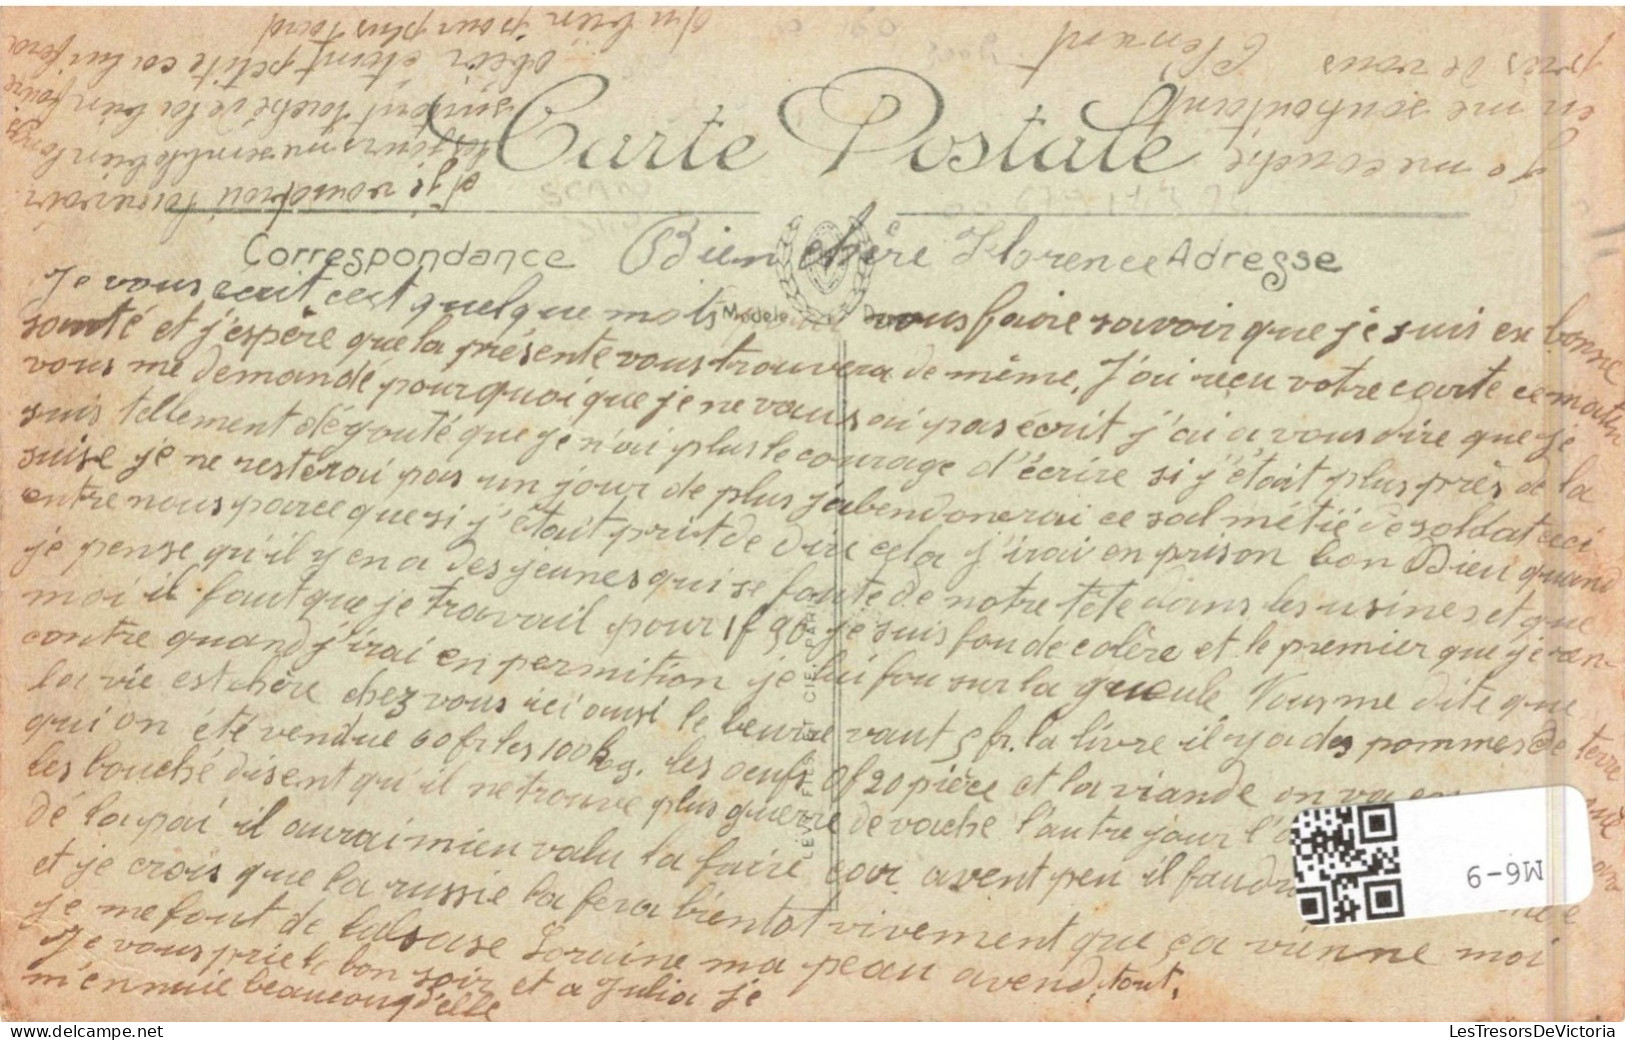 Carte Postale
Correspondance
Adresse
Modèle
Bien chère Florence
Je vous écrit cest quelque mots vous faire savoir que je suis en bonne
santé et j'espère que la présente vous trouvera de même, J'ai reçu votre carte ce matin
vous me demandé pourquoi que je ne vous ai pas écrit j'ai a vous dire que je
suis tellement dégouté que je n'ai plus le courage d'écrire si j'était plus près de la
suise je ne resterai pas un jour de plus j'abendonerai ce sal métié de soldat ceci
entre nous parce que si j'était prit de dire cela j'irai en prison bon Dieu quand
je pense qu'il y en a des jeunes qui se foute de notre tête dans les usines et que
moi il faut que je travail pour 1f90 je suis fou de colère et le premier que je ren-
contre quand j'irai en permition je lui fou sur la gueule Vous me dite que
la vie est chère chez vous ici ausi le beurre vaut 5 fr. la livre il y a des pommes de terre
qui on été vendue 60 fr les 100 kg. les oeufs 0f20 pièce et la viande on va
les bouché disent qu'il ne trouve plus guerre de vache l'autre jour
dé la pai il aurai mieu valu la faire car avent peu il faudra
et je crois que la russie la fera bientot vivement que ça vienne moi
je me fout de l'alsase Loraine ma peau avend tout.
Je vous prie le bon soir et a Julia je
m'ennuie beaucoup d'elle
et je voudrai la revoir
les jours me semble bien longs
surtout tache de la bien faire
obéir étant petite ca lui fera
du bien pour plus tard
Je me couche
en me souhaitant
près de vous
Clément
LEVY FILS ET CIE PARIS
M6-9
LesTresorsDeVictoria
www.delcampe.net